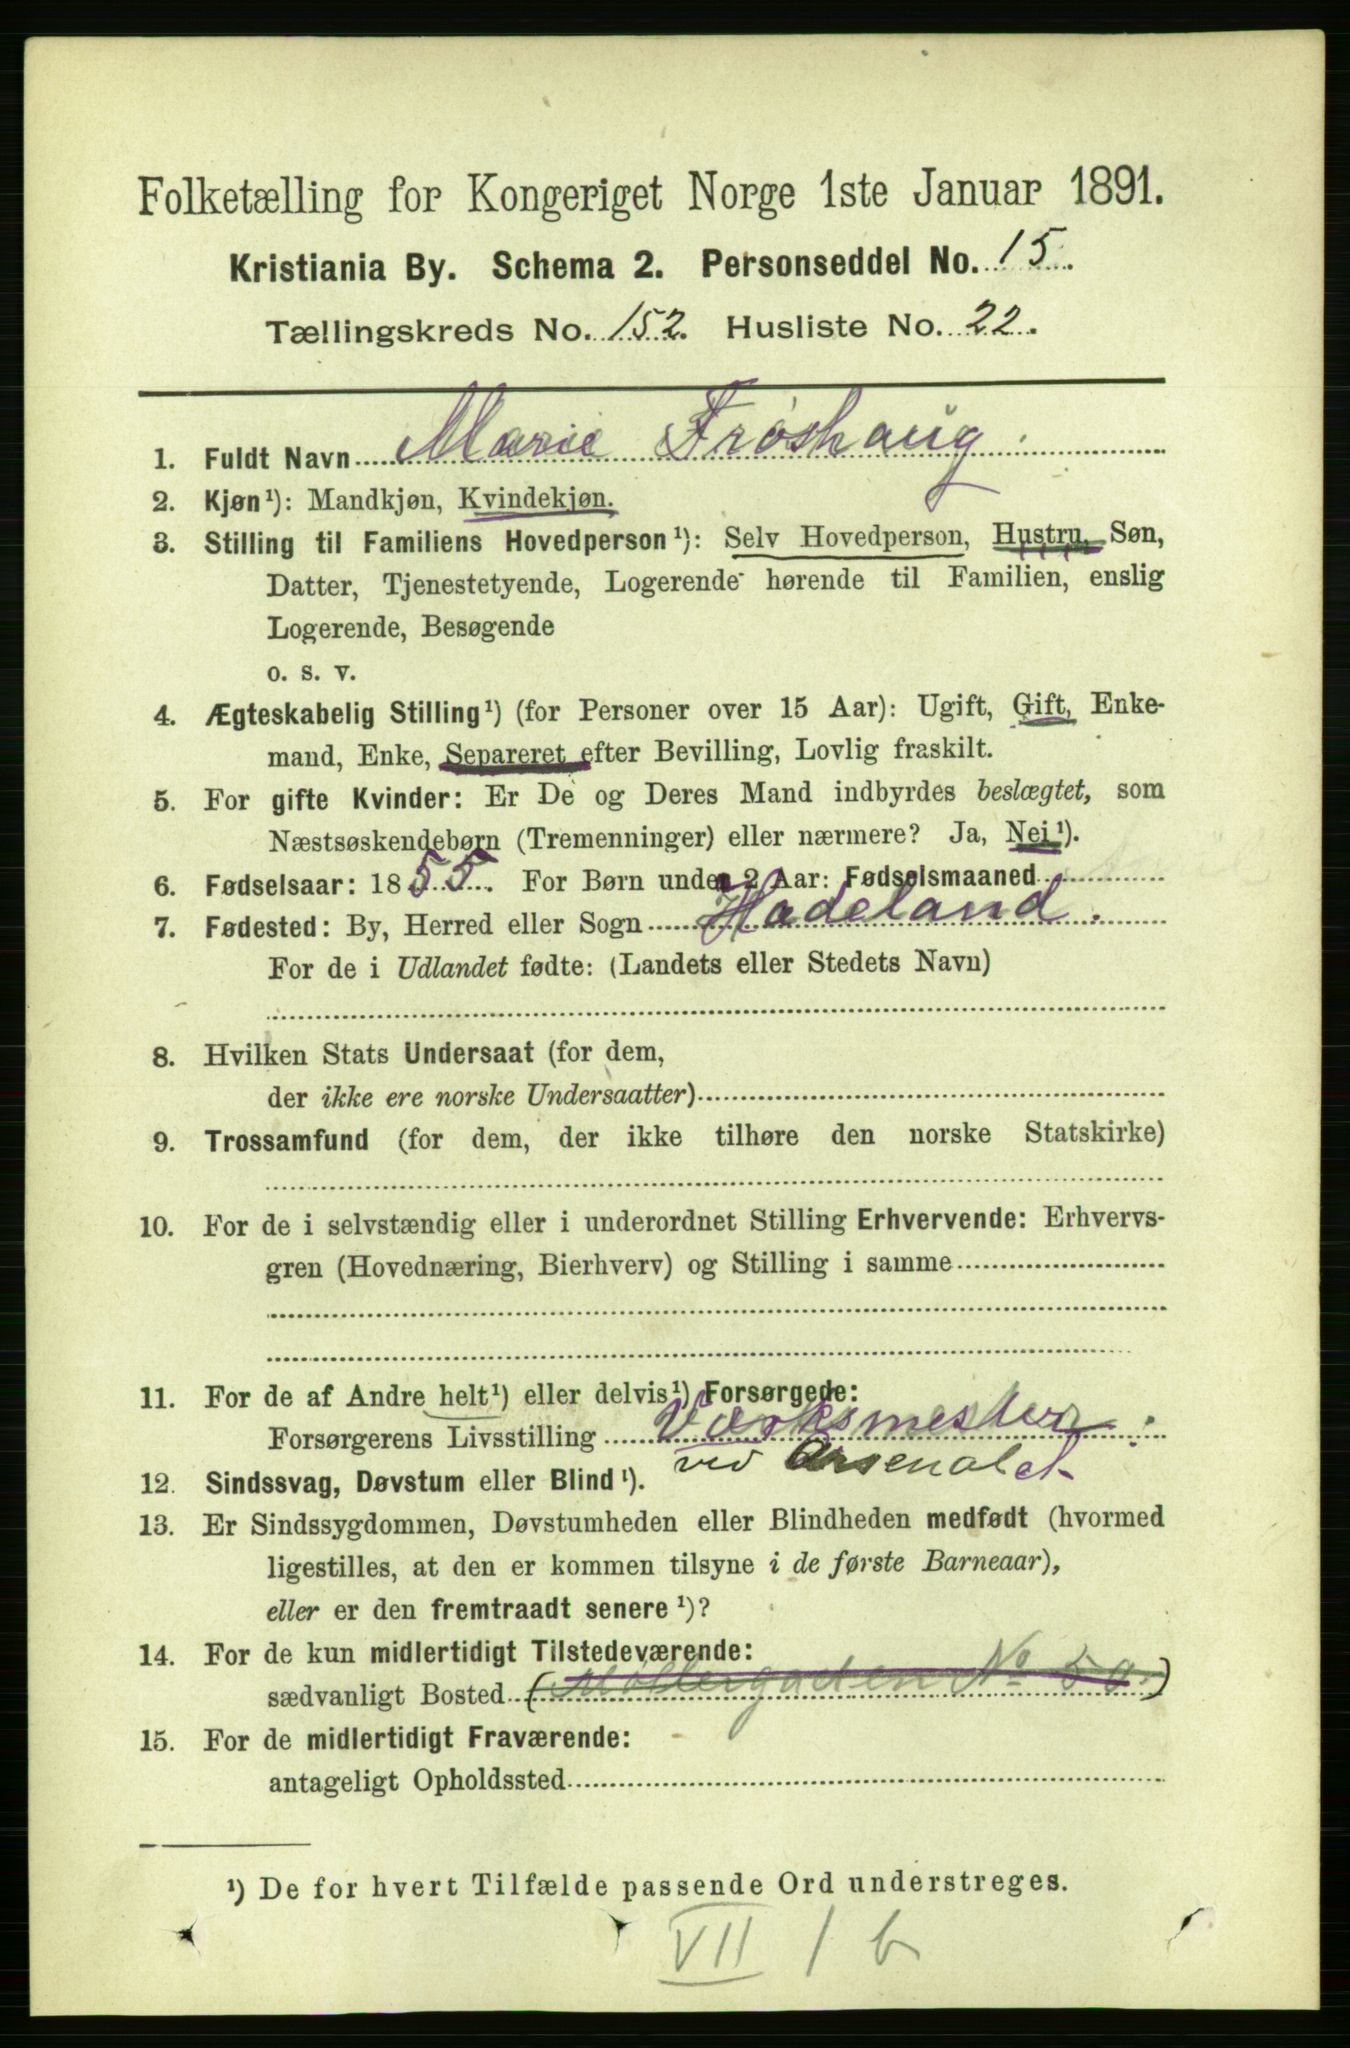 Folketælling for Kongeriget Norge 1ste Januar 1891.
Kristiania By. Schema 2. Personseddel No. 15.
Tællingskreds No. 152. Husliste No. 22.
1. Fuldt Navn Marie Frøshaug.
2. Kjøn¹): Mandkjøn, Kvindekjøn.
3. Stilling til Familiens Hovedperson¹): Selv Hovedperson, Hustru, Søn,
Datter, Tjenestetyende, Logerende hørende til Familien, enslig
Logerende, Besøgende
o. s. v.
4. Ægteskabelig Stilling¹) (for Personer over 15 Aar): Ugift, Gift, Enke-
mand, Enke, Separeret efter Bevilling, Lovlig fraskilt.
5. For gifte Kvinder: Er De og Deres Mand indbyrdes beslægtet, som
Næstsøskendebørn (Tremenninger) eller nærmere? Ja, Nei¹).
6. Fødselsaar: 1855. For Børn under 2 Aar: Fødselsmaaned
7. Fødested: By, Herred eller Sogn Hadeland.
For de i Udlandet fødte: (Landets eller Stedets Navn)
8. Hvilken Stats Undersaat (for dem,
der ikke ere norske Undersaatter)
9. Trossamfund (for dem, der ikke tilhøre den norske Statskirke)
10. For de i selvstændig eller i underordnet Stilling Erhvervende: Erhvervs-
gren (Hovednæring, Bierhverv) og Stilling i samme
11. For de af Andre helt¹) eller delvis¹) Forsørgede:
Forsørgerens Livsstilling Værksmester
ved Arsenalet
12. Sindssvag, Døvstum eller Blind¹).
13. Er Sindssygdommen, Døvstumheden eller Blindheden medfødt (hvormed
ligestilles, at den er kommen tilsyne i de første Barneaar),
eller er den fremtraadt senere¹)?
14. For de kun midlertidigt Tilstedeværende:
sædvanligt Bosted (Møllergaden No 50.)
15. For de midlertidigt Fraværende:
antageligt Opholdssted
¹) De for hvert Tilfælde passende Ord understreges.
VII / b